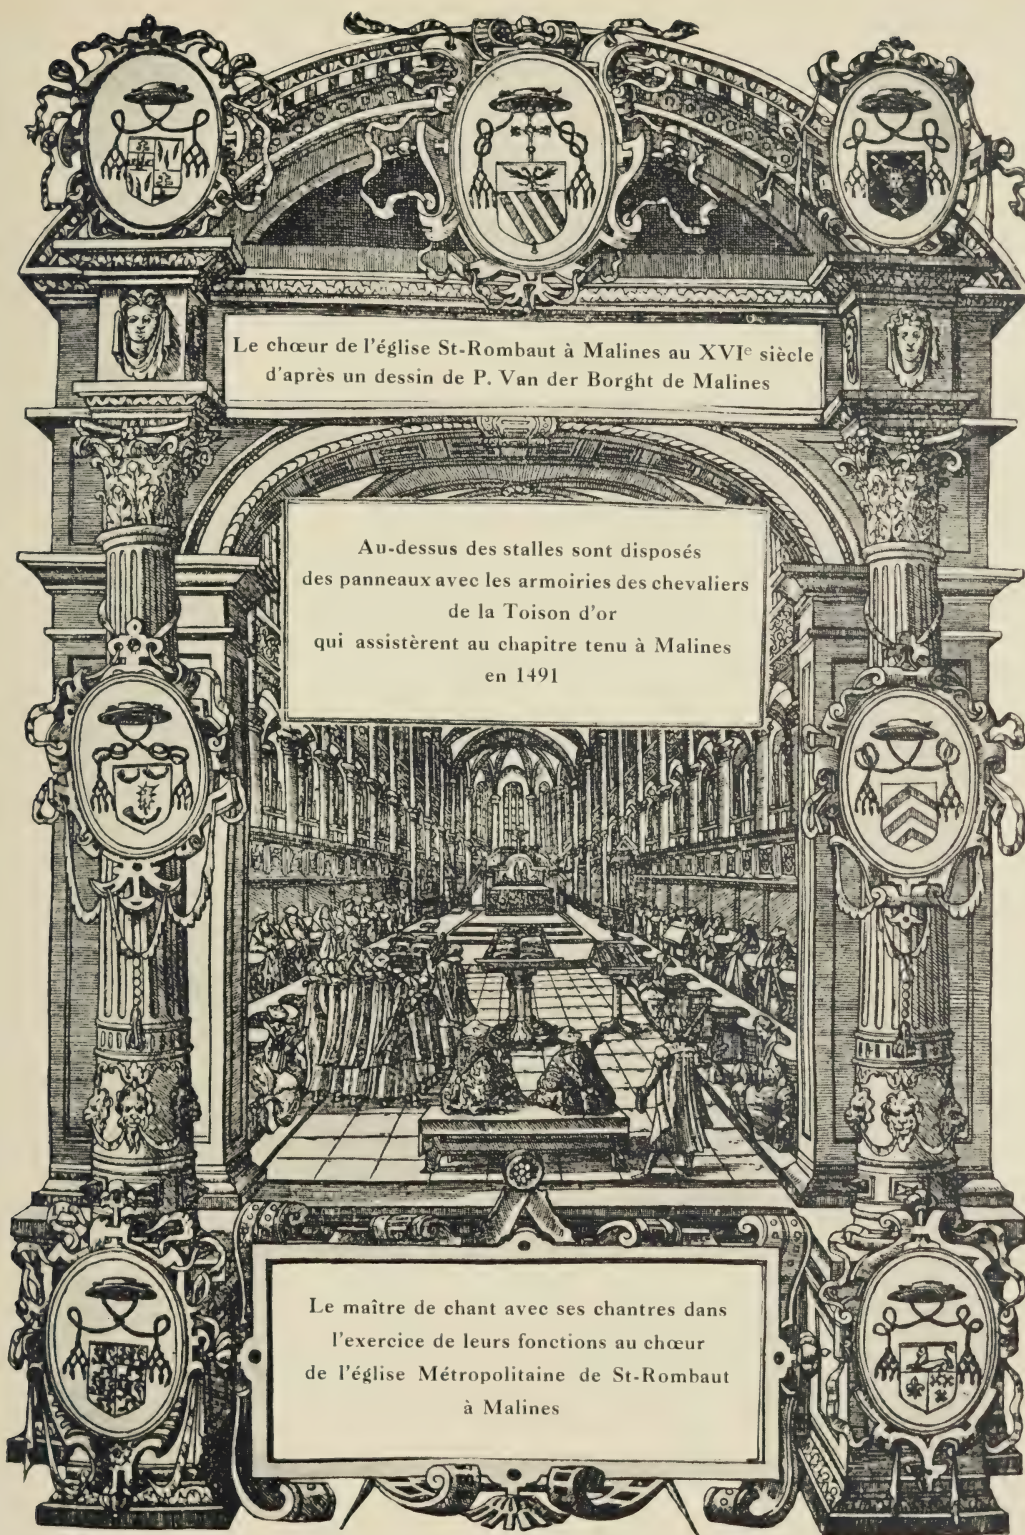 Le chœur de l'église St-Rombaut à Malines au XVIe siècle
d'après un dessin de P. Van der Borght de Malines
Au-dessus des stalles sont disposés
des panneaux avec les armoiries des chevaliers
de la Toison d'or
qui assistèrent au chapitre tenu à Malines
en 1491
Le maître de chant avec ses chantres dans
l'exercice de leurs fonctions au chœur
de l'église Métropolitaine de St-Rombaut
à Malines